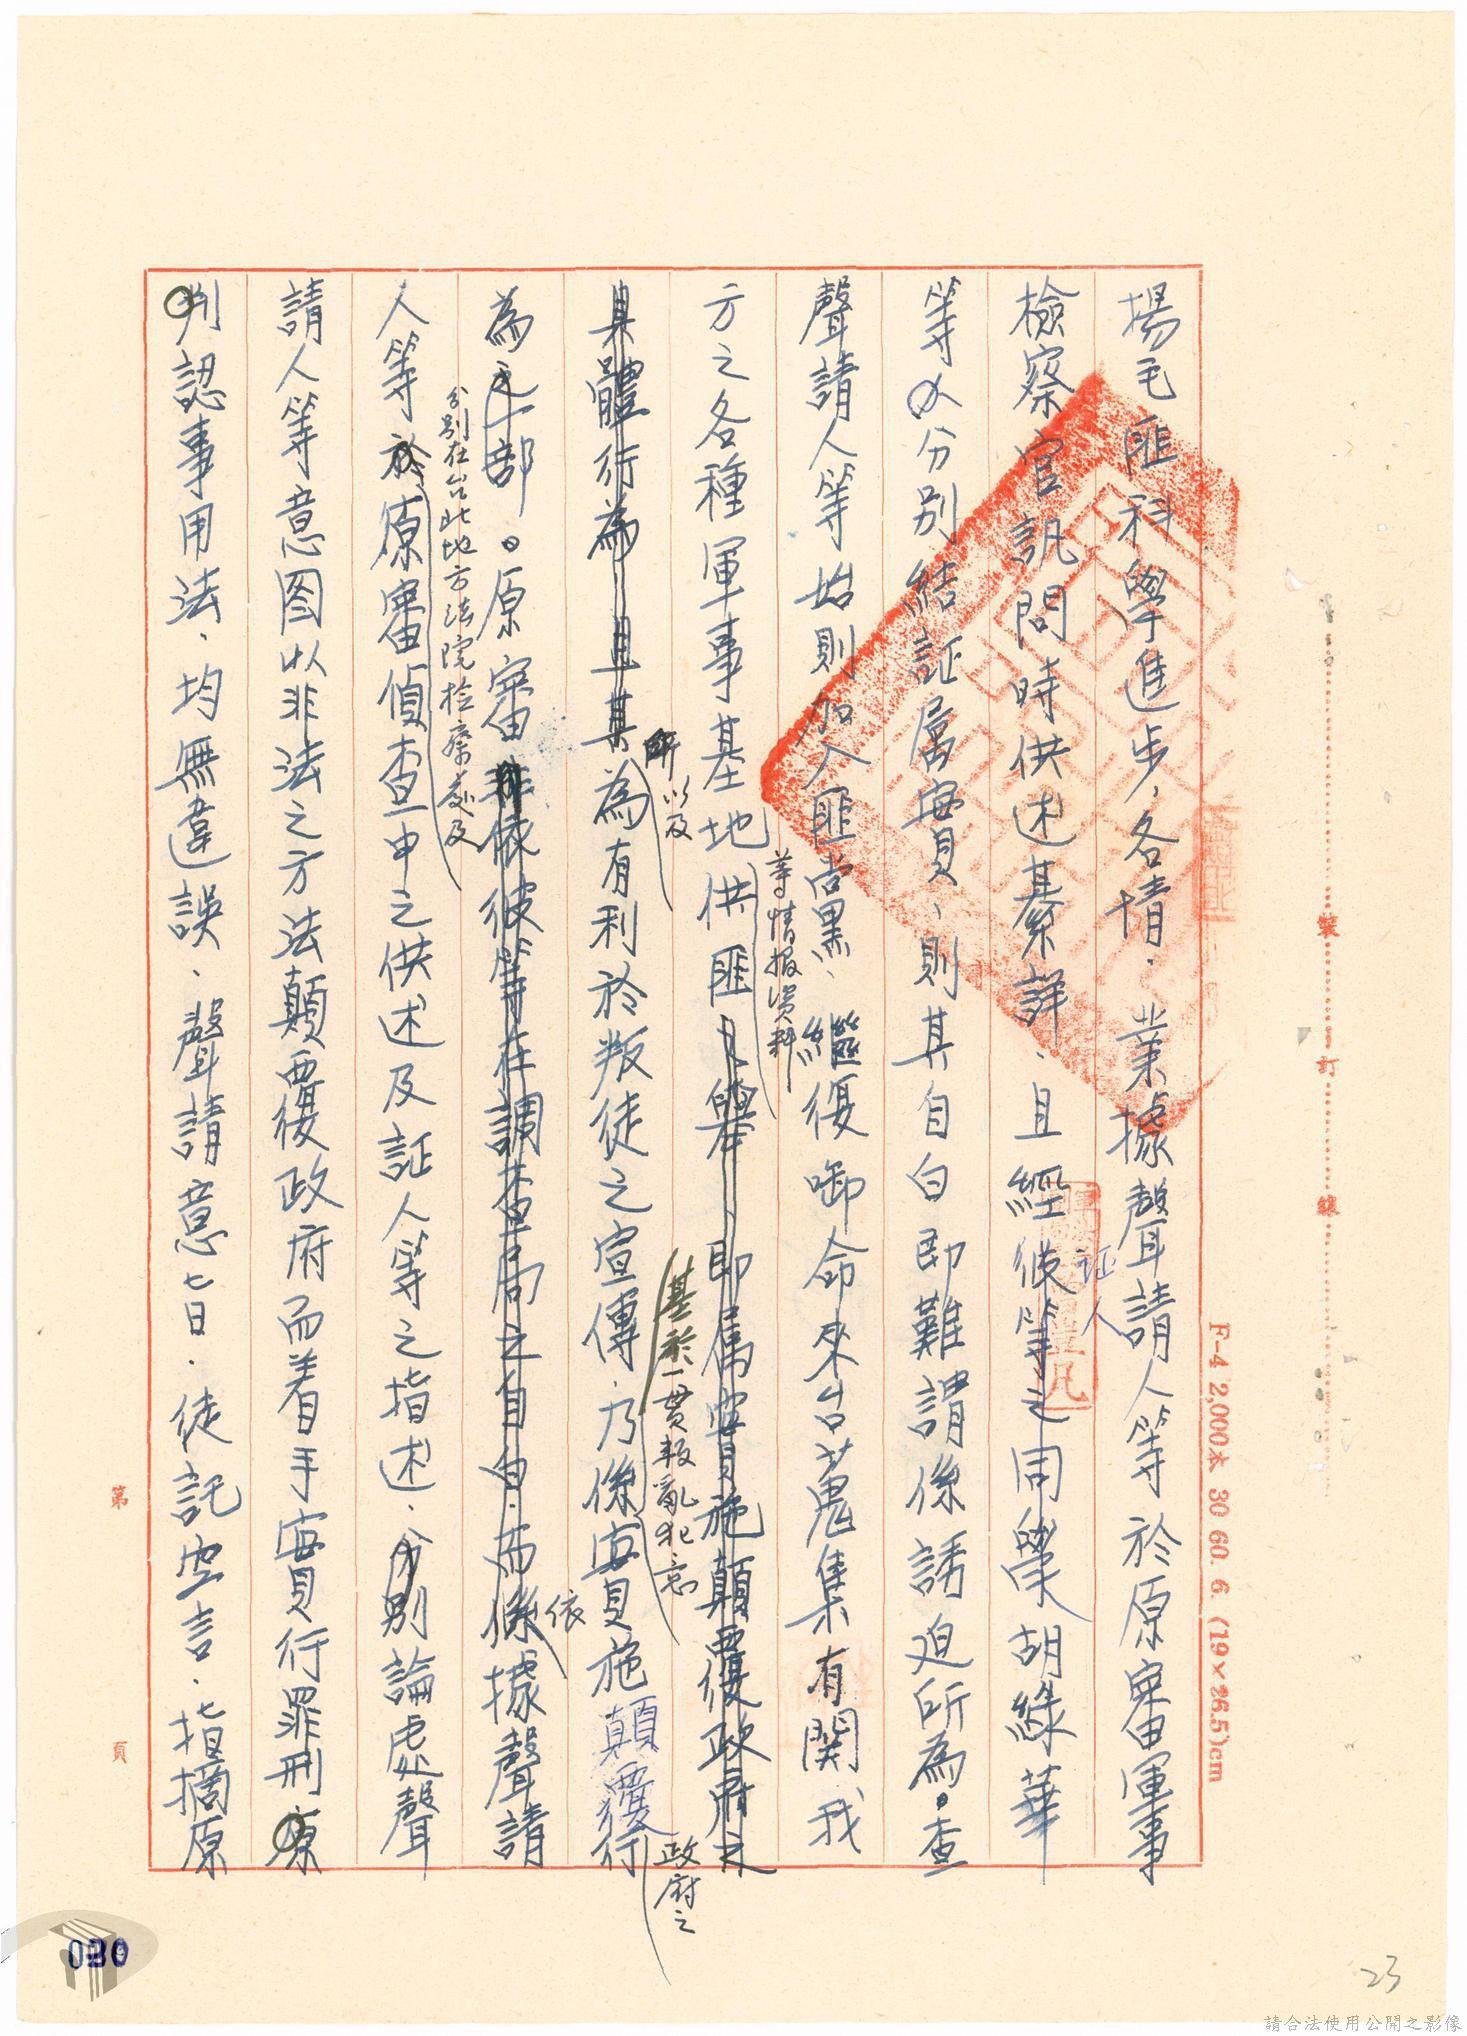 揚毛匪科學進步、各情．業據聲請人等於原審軍事
檢察官訊問時供述綦詳．且經彼等之同學胡綠華
証人
等分別結証属實、則其自白即難謂係誘迫所為。查
聲請人等始則加入匪黨、繼復啣命來台蒐集有關我
等情报資料
方之各種軍事基地供匪即属實施顛覆政府之
基於一貫叛亂犯意
所以及
具體行為且其為有利於叛徒之宣傳．乃係實施顛覆行
政府之
為之一部。原審依彼等在調查局之自白．而係據聲請
依
分別在台北地方法院检察處及
人等於原審偵查中之供述及証人等之指述．分別論處聲
請人等意图以非法之方法顛覆政府而着手實行罪刑．原
判認事用法．均無違誤．聲請意旨．徒託空言．指摘原
裝
訂
線
F-4 2,000本 30 60. 6. (19×26.5)cm
第
頁
030
23
請合法使用公開之影像